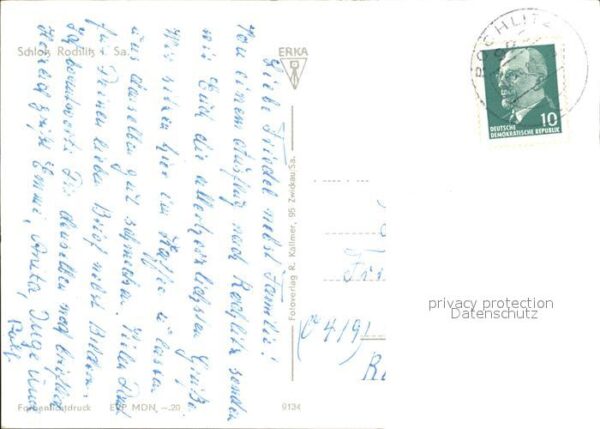 Schloß Rochlitz i. Sa.
Liebe Friedel nebst Familie!
Von einem Ausflug nach Rochlitz senden
wir Euch die allerherzlichsten Grüße.
Wir sitzen hier im Kaffee u. lassen
uns denselben gut schmecken. Vielen Dank
für Deinen lieben Brief nebst Bildern.
Ich beantworte Dir denselben noch brieflich
Herzlich grüßt Emmi, Anita, Inge und
Rolf.
ERKA
Fotoverlag R. Kallmer, 95 Zwickau Sa.
ROCHLITZ
10
DEUTSCHE
DEMOKRATISCHE REPUBLIK
(0419)
privacy protection
Datenschutz
Farbenlichtdruck EVP MDN -.20
9134